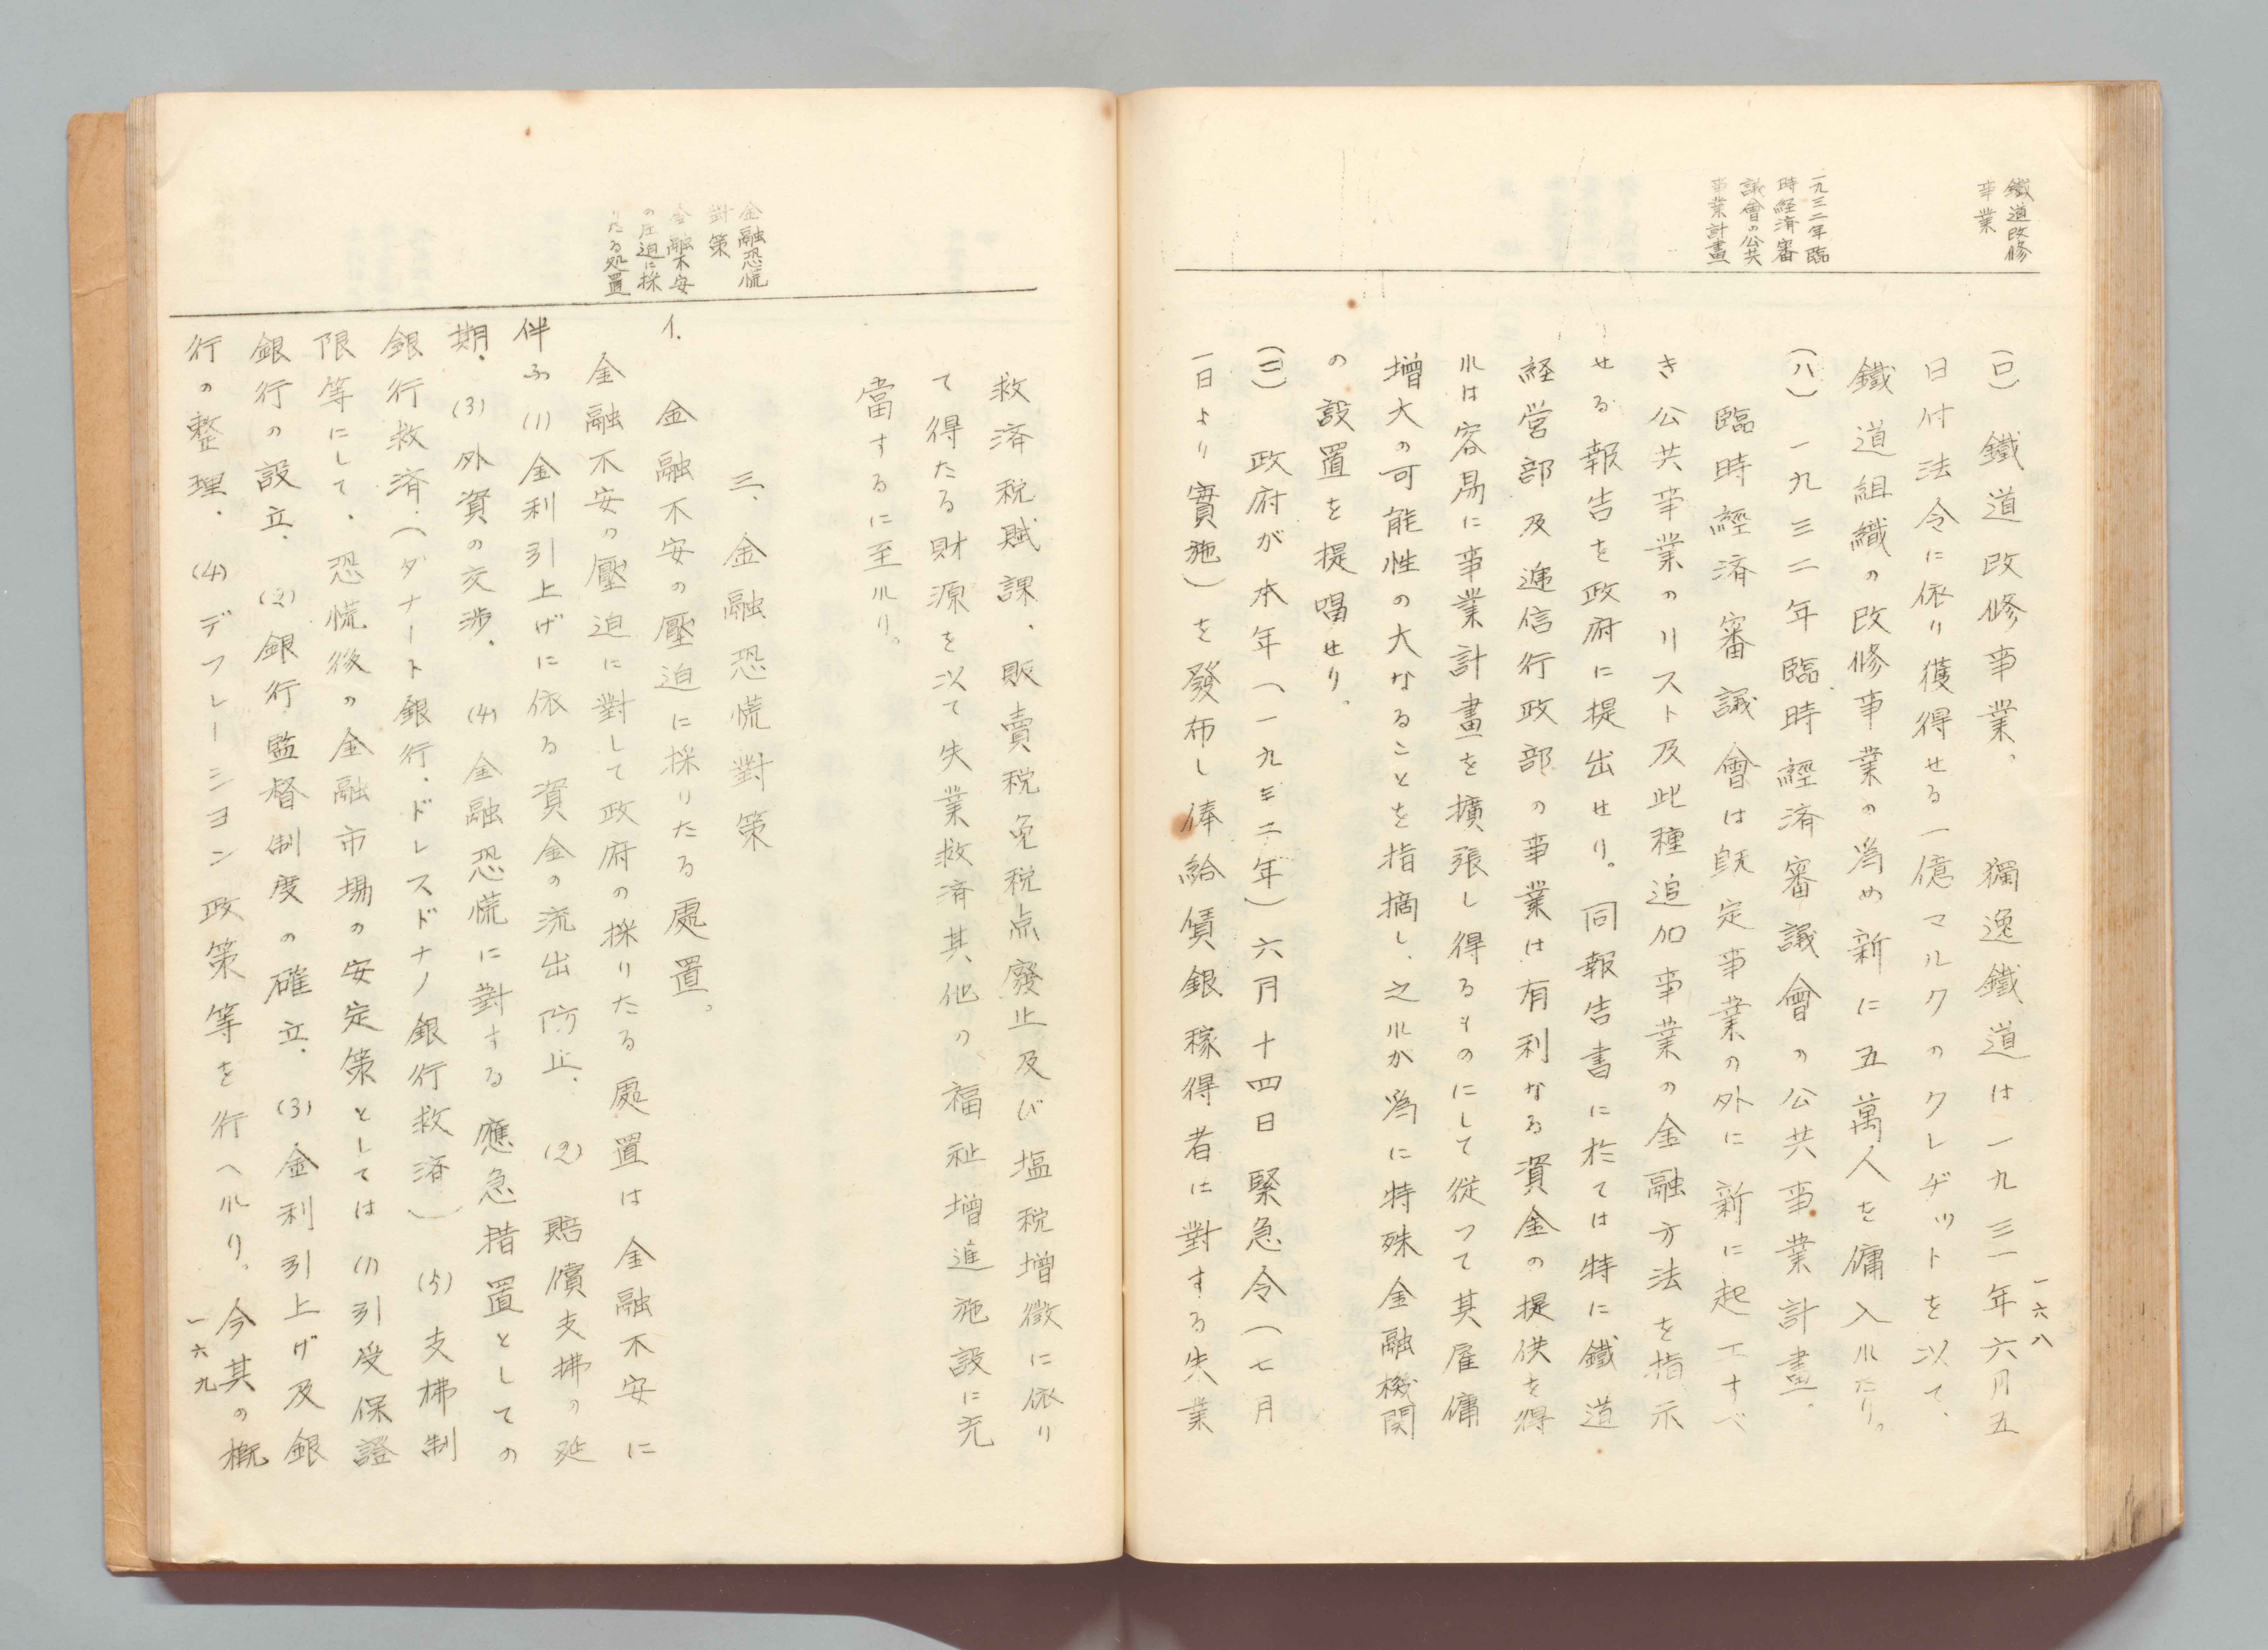 鐵道改修
事業
一九三二年臨
時経済審
議會の公共
事業計畫
一六八
(ロ) 鐵道改修事業。 獨逸鐵道は一九三一年六月五
日付法令に依り獲得せる一億マルクのクレヂットを以て、
鐵道組織の改修事業の為め新に五萬人を傭入ルたり。
(ハ) 一九三二年臨時經済審議會の公共事業計畫.
臨時經済審議會は既定事業の外に新に起工すべ
き公共事業のリスト及此種追加事業の金融方法を指示
せる報告を政府に提出せり。同報告書に於ては特に鐵道
経営部及遞信行政部の事業は有利なる資金の提供を得
ルは容易に事業計畫を擴張し得るものにして従つて其雇傭
増大の可能性の大なることを指摘し、之ルが為に特殊金融機関
の設置を提唱せり。
(ニ) 政府が本年(一九三二年)六月十四日緊急令(七月
一日より實施)を發布し俸給賃銀稼得者に對する失業
金融恐慌
對策
金融不安
の圧迫に採
りたる処置
救済税賦課、販賣税免税点廢止及び塩税増徴に依り
て得たる財源を以て失業救済其他の福祉増進施設に充
當するに至ルり。
三、金融恐慌對策
1. 金融不安の壓迫に採りたる處置。
金融不安の壓迫に對して政府の採りたる處置は金融不安に
伴ふ(1)金利引上げに依る資金の流出防止. (2)賠償支拂の延
期. (3)外資の交渉. (4)金融恐慌に對する應急措置としての
銀行救済.(ダナート銀行.ドレスドナー銀行救済) (5)支拂制
限等にして、恐慌後の金融市場の安定策としては(1)引受保證
銀行の設立. (2)銀行監督制度の確立. (3)金利引上げ及銀
行の整理. (4)デフレーシヨン政策等を行へルり。今其の概
一六九